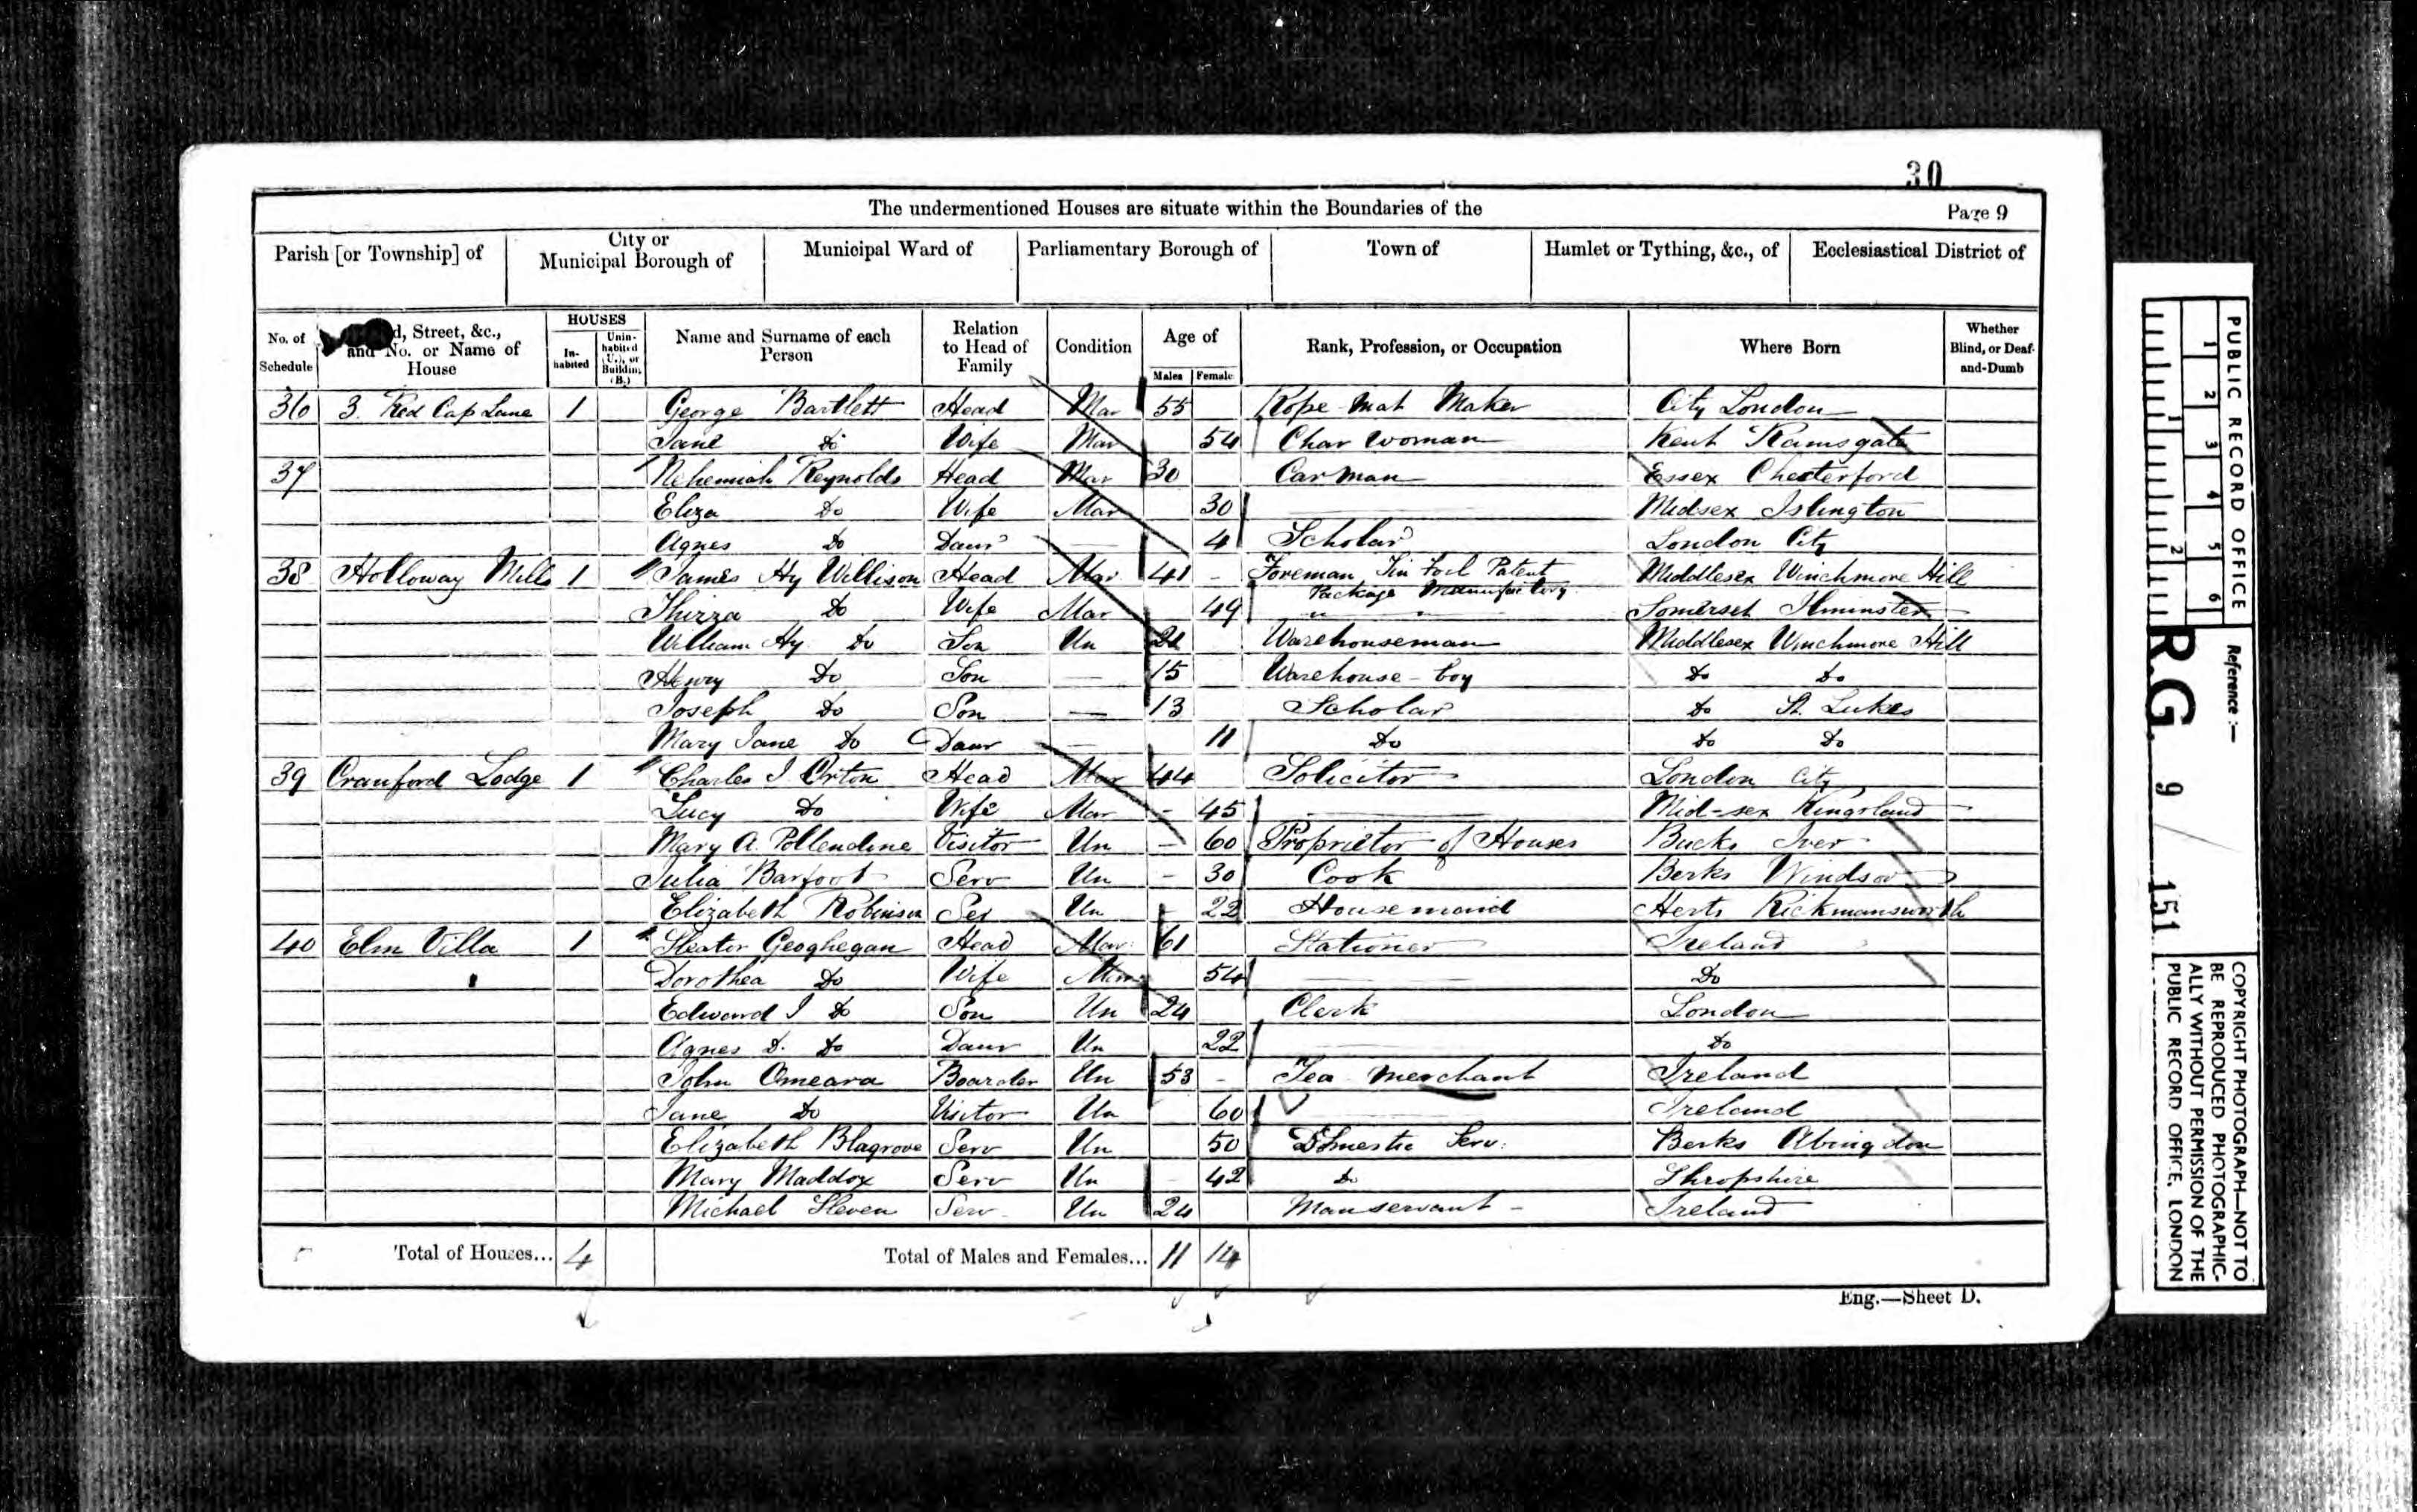 30
The undermentioned Houses are situate within the Boundaries of the Page 9
Parish [or Township] of City or Municipal Borough of Municipal Ward of Parliamentary Borough of Town of Hamlet or Tything, &c., of Ecclesiastical District of
No. of Schedule d, Street, &c., and No. or Name of House HOUSES In-habited Unin-habited (U.), or Buildin, (B.) Name and Surname of each Person Relation to Head of Family Condition Age of Males Female Rank, Profession, or Occupation Where Born Whether Blind, or Deaf-and-Dumb
36 3. Red Cap Lane 1 George Bartlett Head Mar 55 Rope Mat Maker City London
Jane Do Wife Mar 54 Char Woman Kent Ramsgate
37 Nehemiah Reynolds Head Mar 30 Carman Essex Chesterford
Eliza Do Wife Mar 30 Midsex Islington
Agnes Do Daur 4 Scholar London City
38 Holloway Mills 1 James Hy Willison Head Mar 41 Foreman Tin Foil Patent Middlesex Winchmore Hill
Package Manufactory
Thirza Do Wife Mar 49 Somerset Ilminster
William Hy Do Son Un 21 Warehouseman Middlesex Winchmore Hill
Henry Do Son 15 Warehouse-boy Do Do
Joseph Do Son 13 Scholar Do St. Lukes
Mary Jane Do Daur 11 Do Do Do
39 Cranford Lodge 1 Charles J Orton Head Mar 44 Solicitor London City
Lucy Do Wife Mar 45 Mid-sex Kingsland
Mary A. Pollendine Visitor Un 60 Proprietor of Houses Bucks Iver
Julia Barfoot Serv Un 30 Cook Berks Windsor
Elizabeth Robinson Ser Un 22 Housemaid Herts Rickmansworth
40 Elm Villa 1 Geoghegan Head Mar 61 Stationer Ireland
Dorothea Do Wife Mar 54 Do
Edward J Do Son Un 24 Clerk London
Agnes D. Do Daur Un 22 Do
John Omeara Boarder Un 53 Tea Merchant Ireland
Jane Do Visitor Un 60 Ireland
Elizabeth Blagrove Serv Un 50 Domestic Serv: Berks Abingdon
Mary Maddox Serv Un 42 Do Shropshire
Michael Serv Un 24 Manservant Ireland
Total of Houses... 4 Total of Males and Females... 11 14
Eng.—Sheet D.
PUBLIC RECORD OFFICE
1 2 3 4 5 6
1 2
Reference :—
R.G. 9 / 151
COPYRIGHT PHOTOGRAPH—NOT TO
BE REPRODUCED PHOTOGRAPHIC-
ALLY WITHOUT PERMISSION OF THE
PUBLIC RECORD OFFICE, LONDON